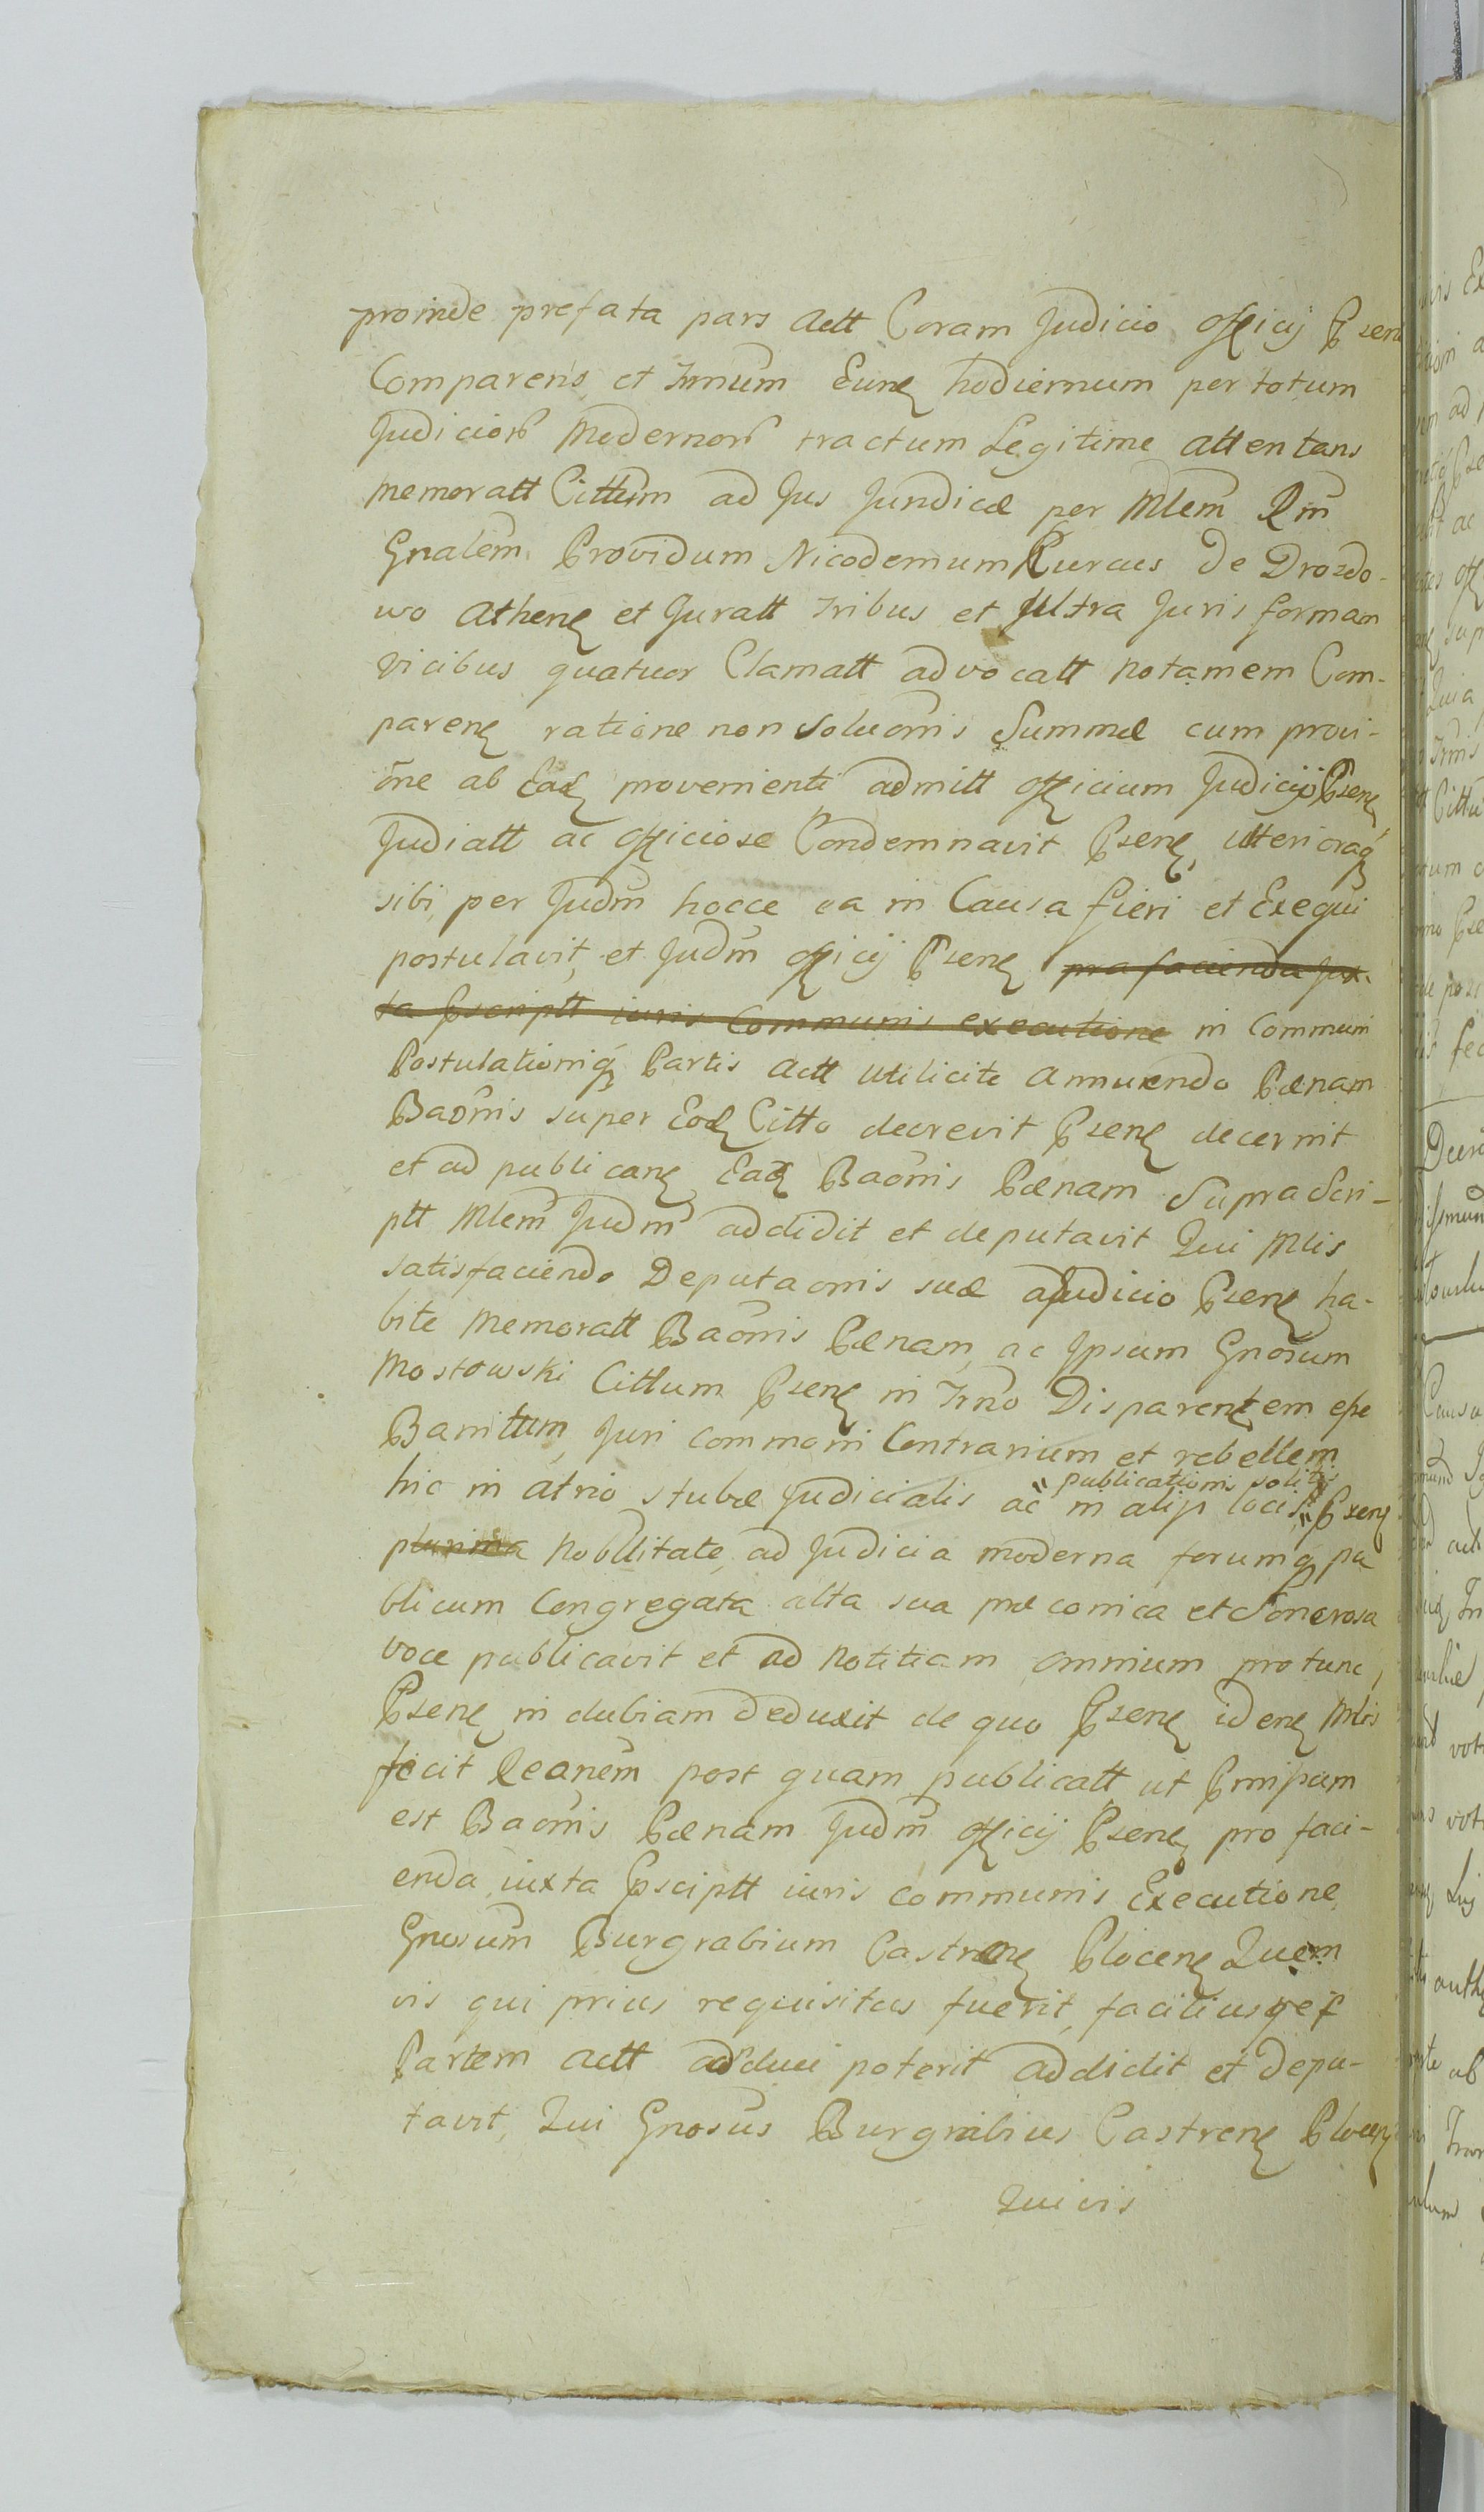 proinde prefata pars Actt Coram Judicio Officij Psen
Comparens et Trnum Eunq hodiernum per totum
Judiciorũ Modernorũ tractum Legitime attentans
Memoratt Cittum ad Jus Juridicæ per Mlem Rm
Gnalem Providum Nicodemum Kurcus de Drozdo-
wo Athenq et Juratt tribus et Ultra Juris formam
vicibus quatuor Clamatt advocatt notamem Com-
parenq ratione non soluonis Summæ cum provi-
one ab Eadq provenienti admitt Officium Judicij Psenq
Judiatt ac Officiose Condemnavit Psenq ulterioraq
sibi per Judm hocce ea in Causa fieri et Exequi
postulavit, et Judm Officij Psenq pro facienda jux-
ta Pscriptt iuris Communis executione in Communi
Postulationiq Partis Actt utilicite Annuendo Pænam
Baonis super Eodq Citto decrevit Psenq decernit
et ad publicanq Eadq Baonis Pænam Supra Scri-
ptt Mlem Judm addidit et deputavit Qui Mlis
satisfaciendo Deputaonis suæ a Judicio Psenq ha-
bite Memoratt Baonis Pænam, ac Ipsum Gnosum
Mostowski Cittum Psenq in Trno Disparentem esse
Banitum, Juri commoni Contrarium et rebellem
publicationi solitis
hic in atrio stubæ Judicialis ac in alijs locis Psenq
plurima Nobilitate, ad Judicia moderna forumq pu
blicum Congregata alta sua præconica et Sonorosa
voce publicavit et ad Notitiam omnium pro tunc,
Psenq in dubiam deduxit de quo Psenq idenq Mlis
fecit Reanem post quam publicatt ut Pmissum
est Baonis Pænam Judm Officij Psenq pro faci-
enda iuxta Psciptt iuris communis Executione
Gnosum Burgrabium Castrenq Plocenq Quem
vis qui prius requisitus fuerit, faciliusqe p
Partem Actt adduci poterit addidit et depu-
tavit, Qui Gnosus Burgrabius Castrenq Plocenq
Quivis